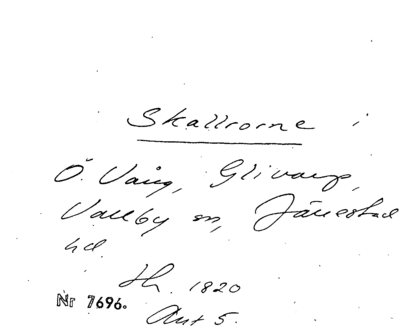 Skallrorne i
Ö. Vång, Glivarp,
Vallby sn, Järrestad
hd.
Th. 1820
Nr 7696.
Ant 5.